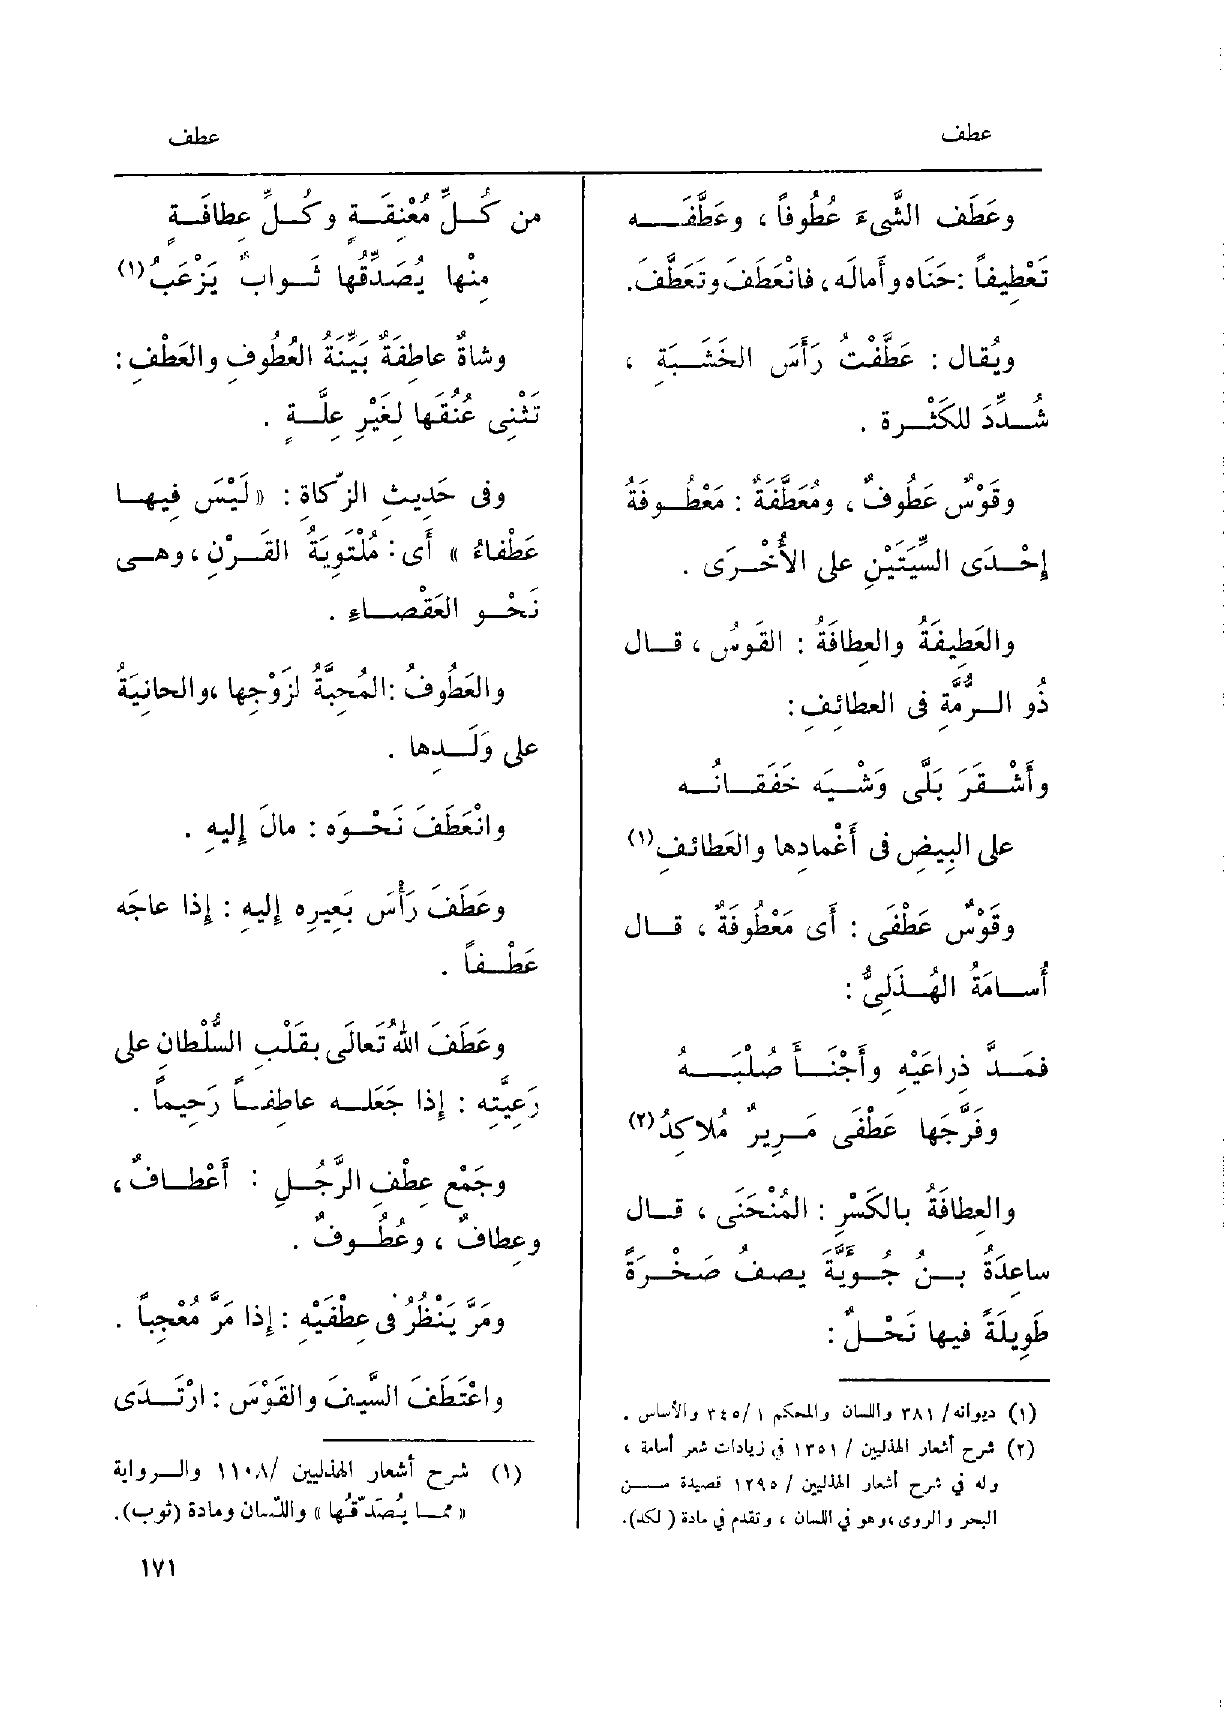 عطف
عطف
وعَطَف الشَّىءَ عُطُوفاً ، وعَطَّفَـــه
تَعْطِيفاً : حَنَاه وأَمالَه ، فانْعَطَفَ وتَعَطَّفَ.
ويُقال : عَطَّفْتُ رَأْسَ الخَشَبَةِ ،
شُــدِّدَ للكَثْــرة .
وقَوْسٌ عَطُوفٌ ، ومُعَطَّفَةٌ : مَعْطُــوفةُ
إِحْــدَى السِّيَتَيْنِ على الأُخْــرَى .
والعَطِيفَةُ والعِطافَةُ : القَوْسُ ، قــال
ذُو الــرُّمَّةِ فى العطائِفِ:
وأَشْــقَرَ بَلَّى وَشْــيَه خَفَقــانُــه
على البِيضِ فى أَغْمادِها والعَطائفِ(١)
وقَوْسٌ عَطْفَى : أَى مَعْطُوفَةٌ ، قــال
أُســامَةُ الهُــذَلِىُّ :
فمَــدَّ ذِراعَيْهِ وأَجْنَــأَ صُلْبَــهُ
وفَرَّجَها عَطْفَى مَــرِيرٌ مُلاكِدُ(٢)
والعِطافَةُ بالكَسْرِ : المُنْحَنَى ، قــال
ساعِدَةُ بــنُ جُــؤَيَّةَ يصفُ صَخْــرَةً
طَوِيلَةً فيها نَحْــلٌ :
(١) ديوانه/ ٣٨١ واللسان والمحكم ١/ ٣٤٥ والأساس .
(٢) شرح أشعار الهذليين / ١٣٥١ في زيادات شعر أسامة ،
وله في شرح أشعار الهذليين / ١٢٩٥ قصيدة مــــن
البحر والروى ،وهو في اللسان ، وتقدم في مادة ( لكد).
من كُــلِّ مُعْنِقَــةٍ وكُــلِّ عِطافَــةٍ
مِنْها يُصَدِّقُها ثَــوابٌ يَزْعَبُ(١)
وشاةٌ عاطِفَةٌ بَيِّنَةُ العُطُوفِ والعَطْفِ :
تَثْنِى عُنُقَها لِغَيْرِ عِلَّــةٍ .
وفى حَدِيثِ الزّكاةِ : «لَيْسَ فِيهــا
عَطْفاءُ » أَى: مُلْتَوِيَةُ القَــرْنِ ، وهــى
نَحْــو العَقْصــاءِ .
والعَطُوفُ :المُحِبَّةُ لزَوْجِها ،والحانِيَةُ
على وَلَــدِها .
وانْعَطَفَ نَحْــوَه : مالَ إِليهِ .
وعَطَفَ رَأْسَ بَعِيرِه إِليهِ : إِذا عاجَه
عَطْــفاً .
وعَطَفَ اللهُ تَعالَى بقَلْبِ السُّلْطانِ على
رَعِيَّتِه : إِذا جَعَلــه عاطِفــاً رَحِيماً .
وجَمْع عِطْفِ الرَّجُــلِ : أَعْطــافٌ ،
وعِطافٌ ، وعُطُــوفٌ .
ومَرَّ يَنْظُرُ فى عِطْفَيْهِ : إِذا مَرَّ مُعْجِباً .
واعْتَطَفَ السَّيفَ والقَوْسَ : ارْتَــدَى
(١) شرح أشعار الهذليين /١١٠٨ والــرواية
« ممــا يُصَدّقُها » واللّسان ومادة (ثوب).
١٧١